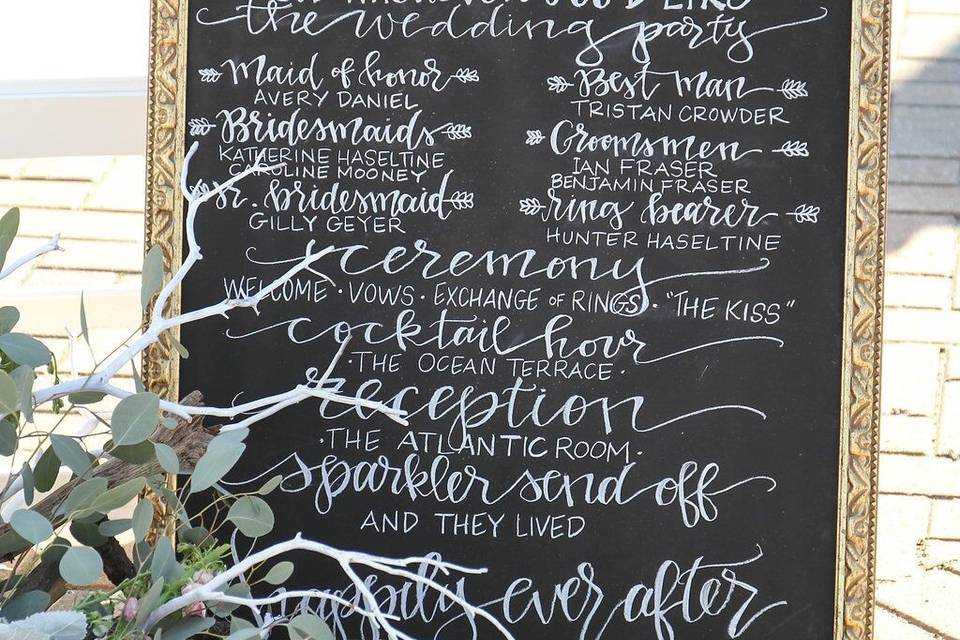 the wedding party
Maid of honor
AVERY DANIEL
Bridesmaids
KATHERINE HASELTINE
CAROLINE MOONEY
Jr. bridesmaid
GILLY GEYER
Best Man
TRISTAN CROWDER
Groomsmen
IAN FRASER
BENJAMIN FRASER
ring bearer
HUNTER HASELTINE
ceremony
WELCOME · VOWS · EXCHANGE of RINGS · "THE KISS"
cocktail hour
· THE OCEAN TERRACE ·
reception
· THE ATLANTIC ROOM ·
sparkler send off
AND THEY LIVED
happily ever after